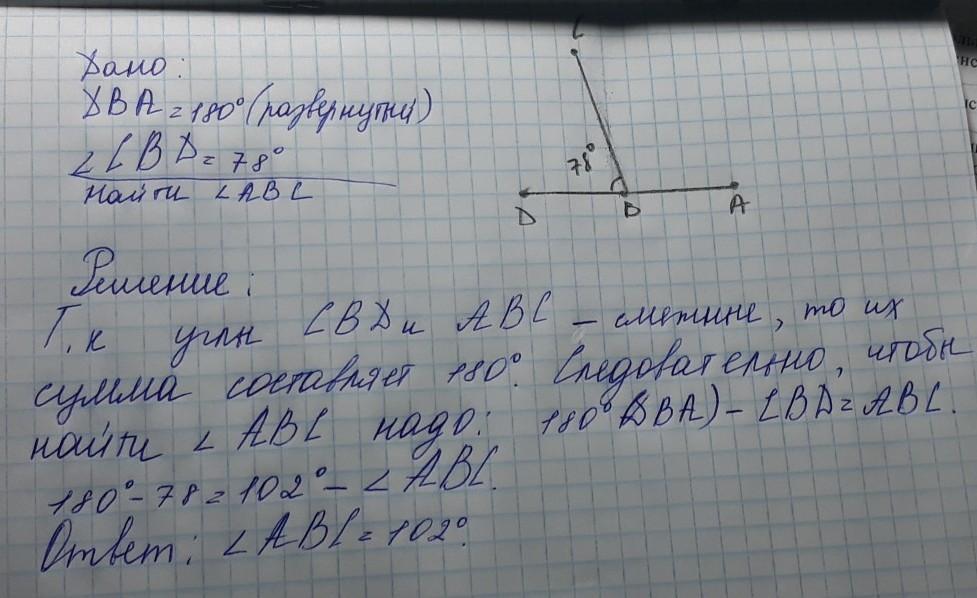 Дано:
DBA = 180° (развернутый)
∠CBD = 78°
Найти ∠ABC
C
78°
D
B
A
Решение:
Т.к углы CBD и ABC – смежные, то их
сумма составляет 180°. Следовательно, чтобы
найти ∠ABC надо: 180° (DBA) – CBD = ABC.
180° - 78 = 102° – ∠ABC.
Ответ: ∠ABC = 102°.